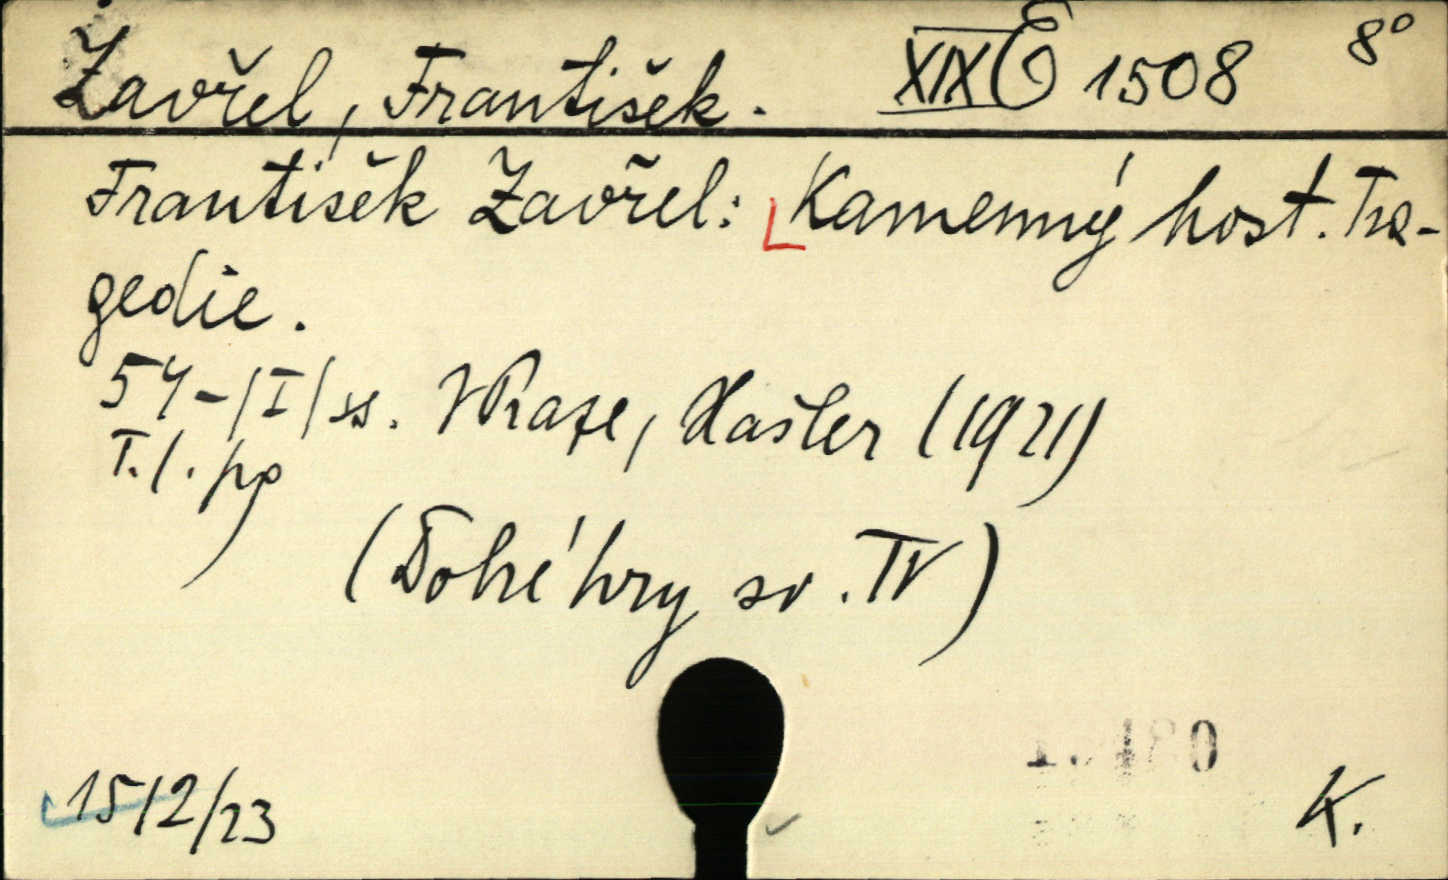 Zavřel, František. XIX E 1508 8°
František Zavřel: Kamenný host. Tra-
gedie.
54-/I/ ss. V Praze, Hašler (1921)
T./. pp
(Dobré hry sv. IV)
15/2/23
K.